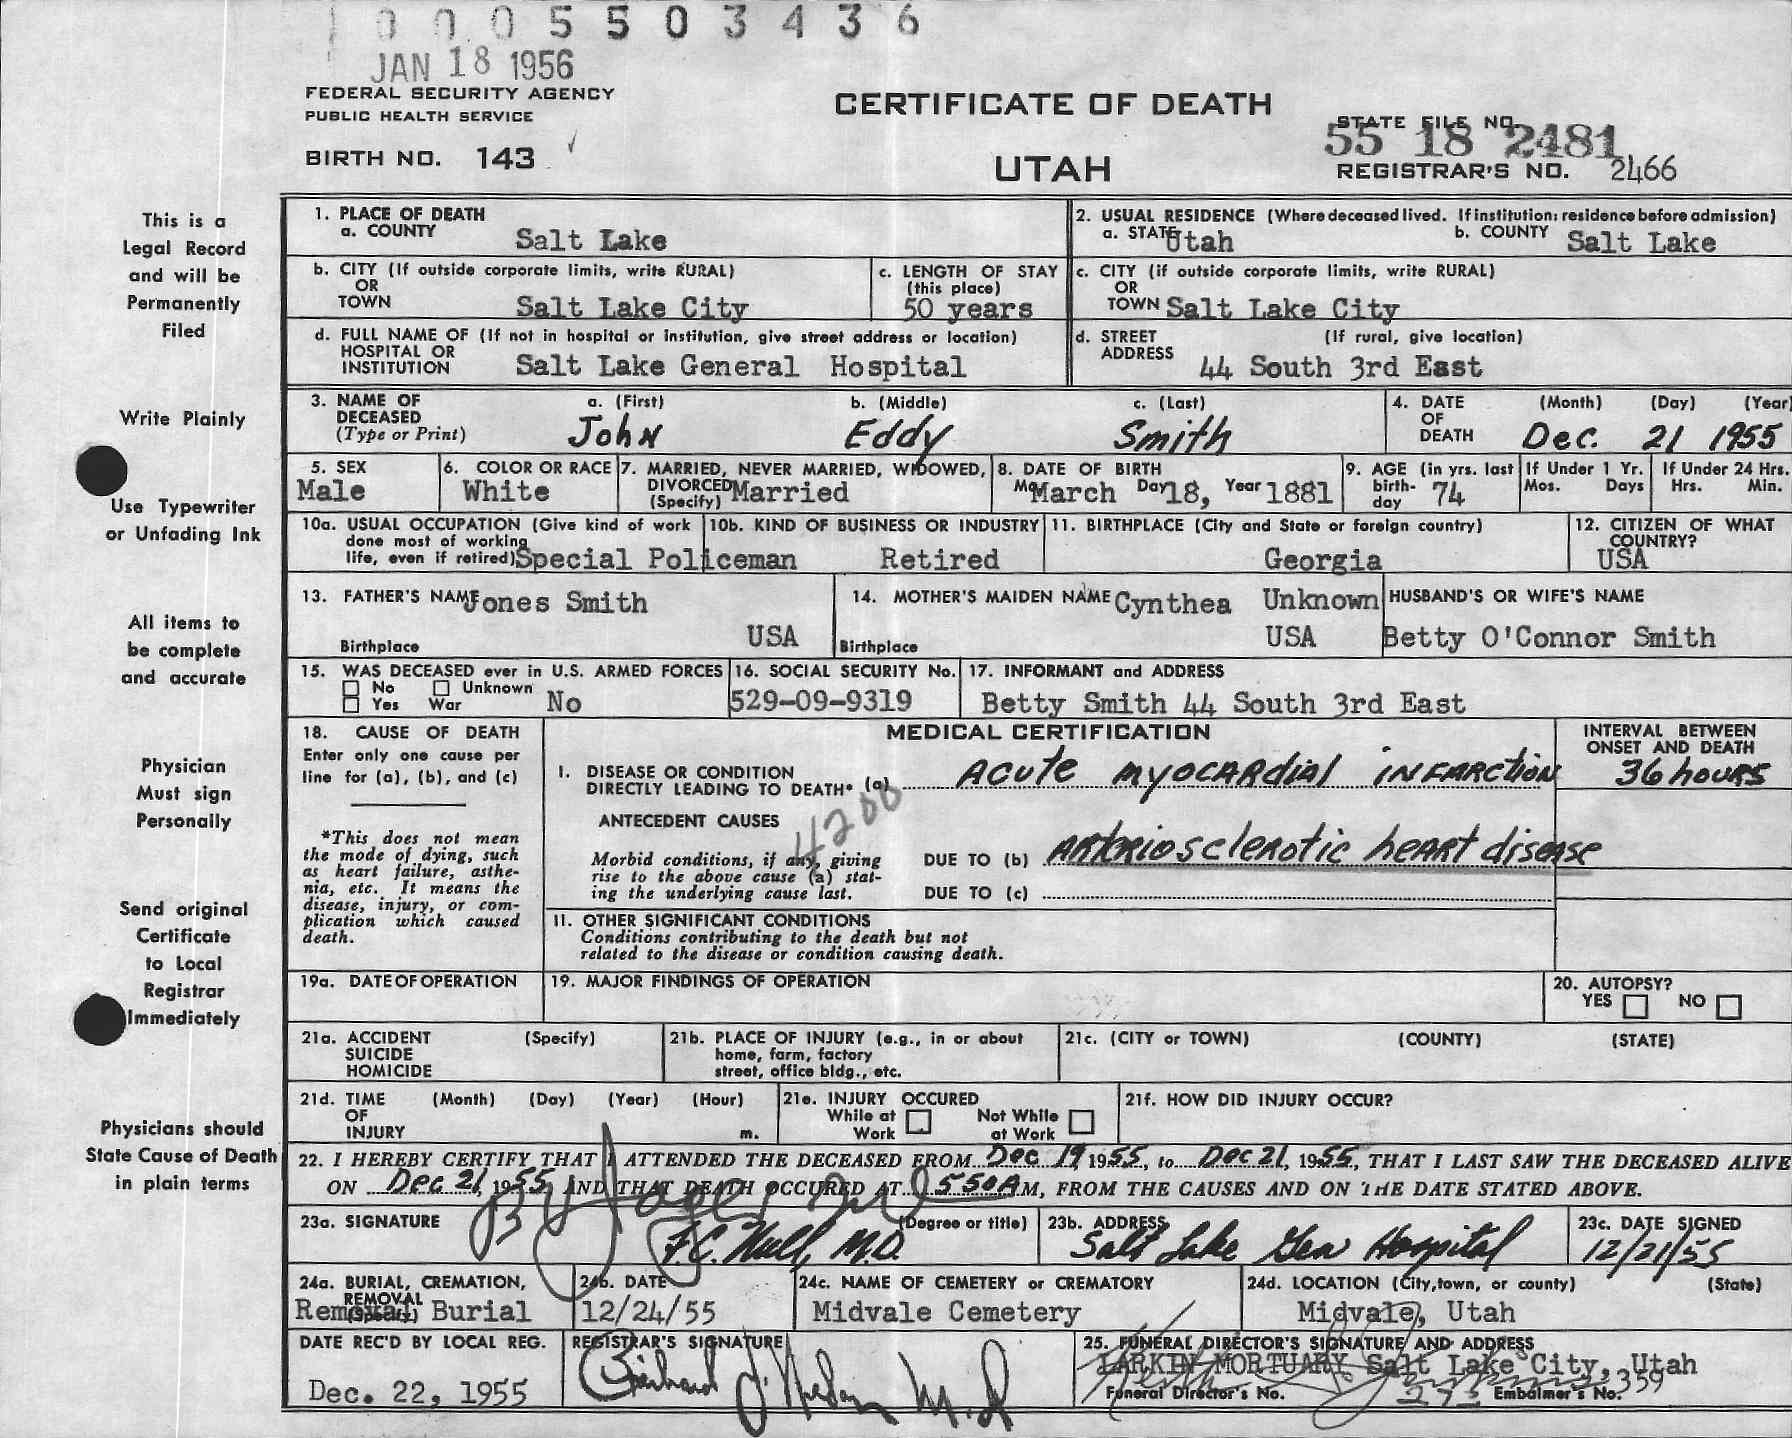 0005503436
JAN 18 1956
FEDERAL SECURITY AGENCY
PUBLIC HEALTH SERVICE
BIRTH NO. 143
CERTIFICATE OF DEATH
UTAH
STATE FILE NO.
55 18 2481
REGISTRAR'S NO. 2466
This is a
Legal Record
and will be
Permanently
Filed
Write Plainly
Use Typewriter
or Unfading Ink
All items to
be complete
and accurate
Physician
Must sign
Personally
Send original
Certificate
to Local
Registrar
Immediately
Physicians should
State Cause of Death
in plain terms
1. PLACE OF DEATH
a. COUNTY Salt Lake
2. USUAL RESIDENCE (Where deceased lived. If institution: residence before admission)
a. STATE Utah b. COUNTY Salt Lake
b. CITY (If outside corporate limits, write RURAL)
OR
TOWN Salt Lake City
c. LENGTH OF STAY
(this place)
50 years
c. CITY (if outside corporate limits, write RURAL)
OR
TOWN Salt Lake City
d. FULL NAME OF (If not in hospital or institution, give street address or location)
HOSPITAL OR
INSTITUTION Salt Lake General Hospital
d. STREET (If rural, give location)
ADDRESS
44 South 3rd East
3. NAME OF a. (First) b. (Middle) c. (Last)
DECEASED
(Type or Print) John Eddy Smith
4. DATE (Month) (Day) (Year)
OF
DEATH Dec. 21 1955
5. SEX
Male
6. COLOR OR RACE
White
7. MARRIED, NEVER MARRIED, WIDOWED,
DIVORCED
(Specify) Married
8. DATE OF BIRTH
Mo March Day 18, Year 1881
9. AGE (in yrs. last
birth-
day 74
If Under 1 Yr.
Mos. Days
If Under 24 Hrs.
Hrs. Min.
10a. USUAL OCCUPATION (Give kind of work
done most of working
life, even if retired) Special Policeman
10b. KIND OF BUSINESS OR INDUSTRY
Retired
11. BIRTHPLACE (City and State or foreign country)
Georgia
12. CITIZEN OF WHAT
COUNTRY?
USA
13. FATHER'S NAME Jones Smith
Birthplace USA
14. MOTHER'S MAIDEN NAME Cynthea Unknown
Birthplace USA
HUSBAND'S OR WIFE'S NAME
Betty O'Connor Smith
15. WAS DECEASED ever in U.S. ARMED FORCES
No Unknown
Yes War No
16. SOCIAL SECURITY No.
529-09-9319
17. INFORMANT and ADDRESS
Betty Smith 44 South 3rd East
18. CAUSE OF DEATH
Enter only one cause per
line for (a), (b), and (c)
*This does not mean
the mode of dying, such
as heart failure, asthe-
nia, etc. It means the
disease, injury, or com-
plication which caused
death.
MEDICAL CERTIFICATION
INTERVAL BETWEEN
ONSET AND DEATH
I. DISEASE OR CONDITION
DIRECTLY LEADING TO DEATH* (a) Acute myocardial infarction 36 hours
4200
ANTECEDENT CAUSES
Morbid conditions, if any, giving
rise to the above cause (a) stat-
ing the underlying cause last.
DUE TO (b) Arteriosclerotic heart disease
DUE TO (c)
II. OTHER SIGNIFICANT CONDITIONS
Conditions contributing to the death but not
related to the disease or condition causing death.
19a. DATE OF OPERATION
19. MAJOR FINDINGS OF OPERATION
20. AUTOPSY?
YES NO
21a. ACCIDENT (Specify)
SUICIDE
HOMICIDE
21b. PLACE OF INJURY (e.g., in or about
home, farm, factory
street, office bldg., etc.
21c. (CITY or TOWN) (COUNTY) (STATE)
21d. TIME (Month) (Day) (Year) (Hour)
OF
INJURY m.
21e. INJURY OCCURED
While at Not While
Work at Work
21f. HOW DID INJURY OCCUR?
22. I HEREBY CERTIFY THAT I ATTENDED THE DECEASED FROM Dec 19 1955, to Dec 21, 1955, THAT I LAST SAW THE DECEASED ALIVE
ON Dec 21, 1955 AND THAT DEATH OCCURED AT 5:50 A M, FROM THE CAUSES AND ON THE DATE STATED ABOVE.
23a. SIGNATURE (Degree or title)
F.C. Hull, M.D.
23b. ADDRESS
Salt Lake Gen Hospital
23c. DATE SIGNED
12/21/55
24a. BURIAL, CREMATION,
REMOVAL
(Specify)
Removal Burial
24b. DATE
12/24/55
24c. NAME OF CEMETERY or CREMATORY
Midvale Cemetery
24d. LOCATION (City, town, or county) (State)
Midvale, Utah
DATE REC'D BY LOCAL REG.
Dec. 22, 1955
REGISTRAR'S SIGNATURE
M.D
25. FUNERAL DIRECTOR'S SIGNATURE AND ADDRESS
LARKIN MORTUARY Salt Lake City, Utah
Funeral Director's No. 273 Embalmer's No. 359